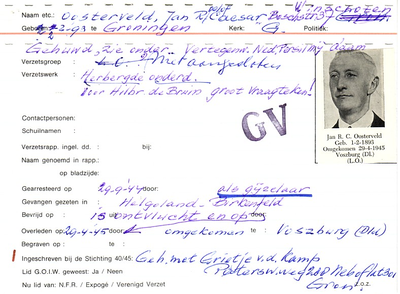 Naam etc.: Oosterveld, Jan R. Caesar
Gebo 1-2-93 te Groningen Kerk: G. Politiek:
Gehuwd,
Verzetsgroep : L.O. ? Niet aangesloten
Verzetswerk Herbergde onderd.
Door Hilbr. de Bruin groot vraagteken!
GV
Contactpersonen:
Schuilnaam :
Verzetsrapp. ingel. dd. : bij:
Naam genoemd in rapp.:
op bladzijde:
Jan R. C. Oosterveld
Geb. 1-2-1893
Omgekomen 29-4-1945
Voszburg (Dl.)
(L.O.)
Gearresteerd op : 29-9-44 door: als gijzelaar
Gevangen gezeten in : Helgoland - Birkenfeld
Bevrijd op : is ontvlucht en op
Overleden op : 29-4-45 door: omgekomen te Voszburg (Dld)
Begraven op : te
Ingeschreven bij de Stichting 40/45: Geh. met Grietje v.d. Kamp
Lid G.O.I.W. geweest: Ja / Neen
Gron. z.o.z.
Nu lid van: N.F.R. / Expogé / Verenigd Verzet